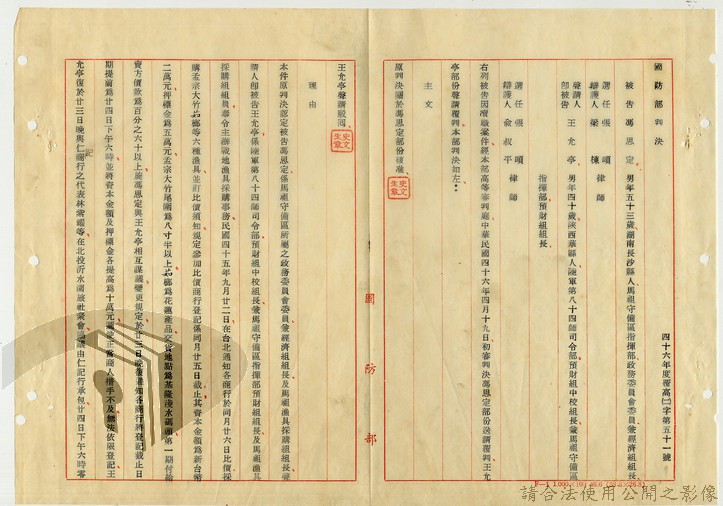 國防部判決
四十六年度覆高㈡字第五十一號
被告 馮思定 男年五十三歲湖南長沙縣人馬祖守備區指揮部政務委員會委員兼經濟組組長
選任辯護人 張嘯律師
梁棟律師
聲請人即被告 王允亭 男年四十歲陝西華縣人陸軍第八十四師司令部預財組中校組長兼馬祖守備區
指揮部預財組組長
選任辯護人 張嘯律師
俞叔平律師
右列被告因瀆職案件經本部高等審判庭中華民國四十六年四月十九日初審判決馮思定部份送請覆判王允
亭部份聲請覆判本部判決如左:
主文
原判決關於馮思定部份核准
王允亭聲請駁回
理由
本件原判決認定被告馮思定係馬祖守備區所屬之政務委員會委員兼經濟組組長及馬祖漁具採購組組長聲
請人即被告王允亭係陸軍第八十四師司令部預財組中校組長兼馬祖守備區指揮部預財組組長及馬祖漁具
採購組組員奉令主辦戰地漁具採購事務民國四十五年九月廿二日在台北通知各商行於同月廿六日比價採
購孟宗大竹茄榔等六種漁具並訂比價須知規定參加比價商行登記係同月廿五日截止其資本金額為新台幣
二萬元押標金為五萬元孟宗大竹尾圍為八寸半以上茄榔為花蓮產品交貨地點為基隆淺水碼頭第一期付給
賣方價款為百分之六十以上馮思定與王允亭相互謀議變更規定於廿三日晚復通知各商行將登記截止日
期提前為廿四日下午六時並將資本金額及押標金各提高為十萬元圖使正當商人措手不及無法依限登記王
允亭復於廿三日晚與仁記商行之代表林紫耀等在北投沂水園旅社聚會議由仁記行承包廿四日下午六時零
史文生章
史文生章
國防部
請合法使用公開之影像